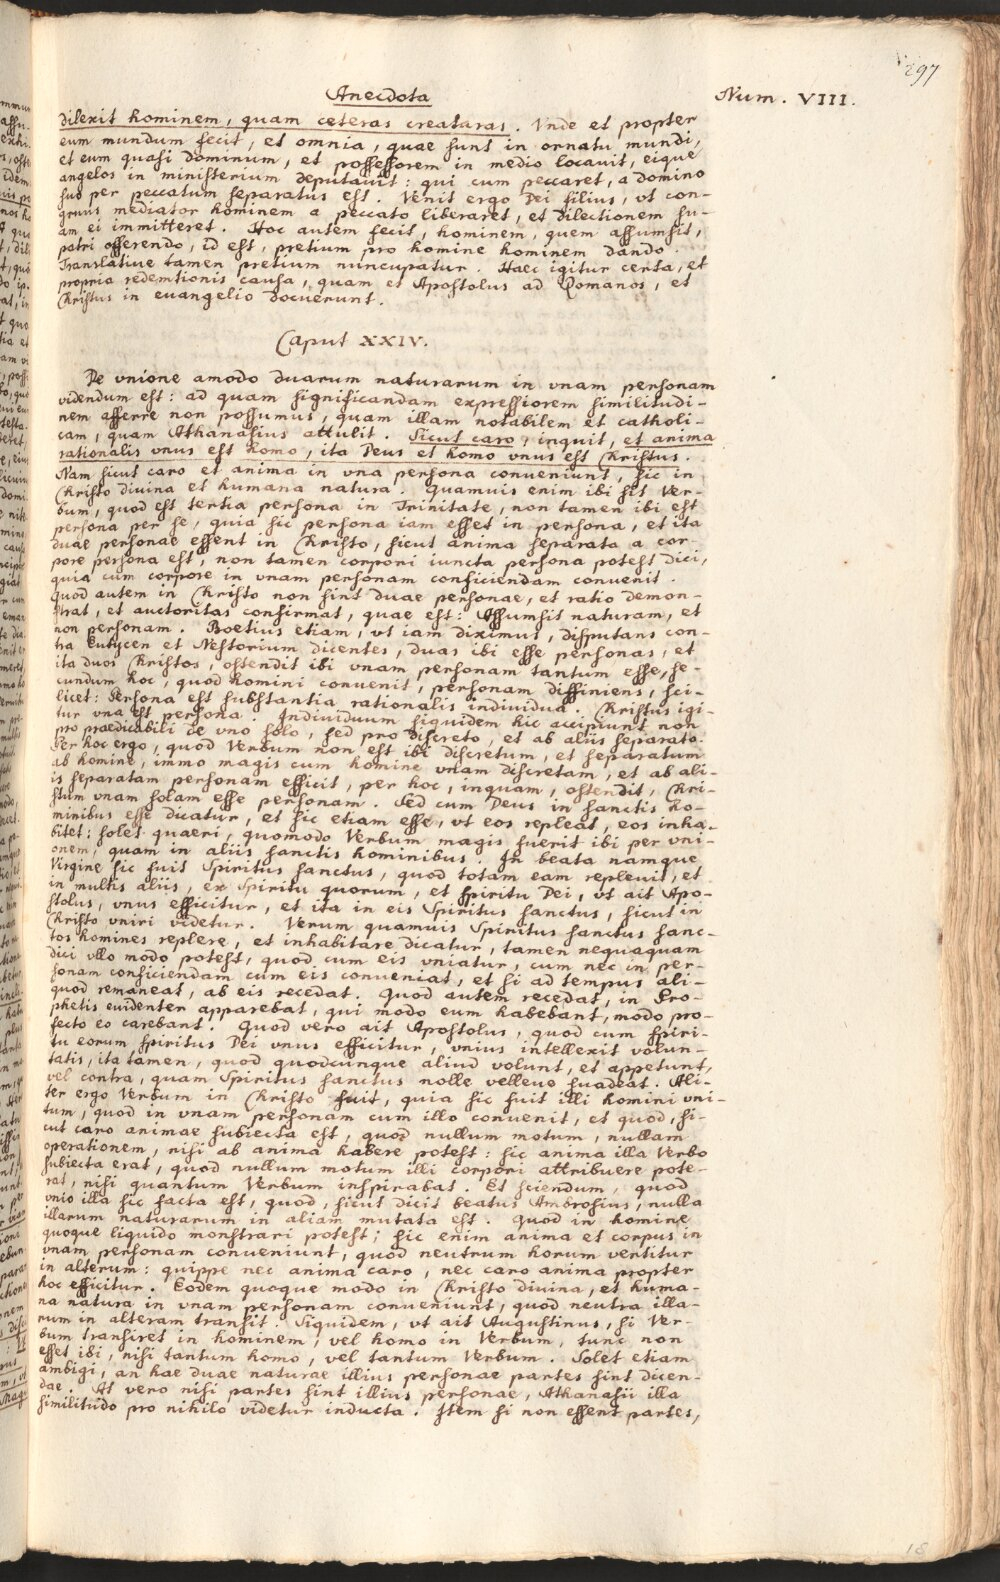 297
Anecdota Num. VIII.
dilexit hominem, quam ceteras creaturas. Vnde et propter
eum mundum fecit, et omnia, quae sunt in ornatu mundi,
et eum quasi dominum, et possessorem in medio locauit, eique
angelos in ministerium deputauit: qui cum peccaret, a Domino
suo per peccatum separatus est. Venit ergo Dei filius, vt con-
gruus mediator hominem a peccato liberaret, et dilectionem su-
am ei immitteret. Hoc autem fecit, hominem, quem assumsit,
patri offerendo, id est, pretium pro homine hominem dando.
Translatiue tamen pretium nuncupatur. Haec igitur certa, et
propria redemtionis causa, quam et Apostolus ad Romanos, et
Christus in euangelio docuerunt.
Caput XXIV.
De vnione amodo duarum naturarum in vnam personam
videndum est: ad quam significandam expressiorem similitudi-
nem afferre non possumus, quam illam notabilem et catholi-
cam, quam Athanasius attulit. Sicut caro, inquit, et anima
rationalis vnus est homo, ita Deus et homo vnus est Christus.
Nam sicut caro et anima in vna persona conueniunt, sic in
Christo diuina et humana natura. Quamuis enim ibi sit Ver-
bum, quod est tertia persona in Trinitate, non tamen ibi est
persona per se, quia sic persona iam esset in persona, et ita
duae personae essent in Christo, sicut anima separata a cor-
pore persona est, non tamen corpori iuncta persona potest dici,
quia cum corpore in vnam personam conficiendam conuenit.
Quod autem in Christo non sint duae personae, et ratio demon-
strat, et auctoritas confirmat, quae est: Assumsit naturam, et
non personam. Boetius etiam, vt iam diximus, disputans con-
tra Eutycen et Nestorium dicentes, duas ibi esse personas, et
ita duos Christos, ostendit ibi vnam personam tantum esse, se-
cundum hoc, quod homini conuenit, personam diffiniens, sci-
licet: Persona est substantia rationalis indiuidua. Christus igi-
tur vna est persona. Indiuiduum siquidem hic accipiunt non
pro praedicabili de vno solo, sed pro discreto, et ab aliis separato.
Per hoc ergo, quod Verbum non est ibi discretum, et separatum
ab homine, immo magis cum homine vnam discretam, et ab ali-
is separatam personam efficit, per hoc, inquam, ostendit, Chri-
stum vnam solam esse personam. Sed cum Deus in sanctis ho-
minibus esse dicatur, et sic etiam esse, vt eos repleat, eos inha-
bitet: solet quaeri, quomodo Verbum magis fuerit ibi per vni-
onem, quam in aliis sanctis hominibus. In beata namque
Virgine sic fuit Spiritus sanctus, quod totam eam repleuit, et
in multis aliis, ex Spiritu quorum, et spiritu Dei, vt ait Apo-
stolus, vnus efficitur, et ita in eis Spiritus sanctus, sicut in
Christo vniri videtur. Verum quamuis Spiritus sanctus sanc-
tos homines replere, et inhabitare dicatur, tamen nequaquam
dici vllo modo potest, quod cum eis vniatur, cum nec in per-
sonam conficiendam cum eis conueniat, et si ad tempus ali-
quod remaneat, ab eis recedat. Quod autem recedat, in Pro-
phetis euidenter apparebat, qui modo eum habebant, modo pro-
fecto eo carebant. Quod vero ait Apostolus, quod cum spiri-
tu eorum spiritus Dei vnus efficitur, vnius intellexit volun-
tatis, ita tamen, quod quodcunque aliud volunt, et appetunt,
vel contra, quam Spiritus sanctus nolle velleue suadeat. Ali-
ter ergo Verbum in Christo fuit, quia sic fuit illi homini vni-
tum, quod in vnam personam cum illo conuenit, et quod, si-
cut caro animae subiecta est, quod nullum motum, nullam
operationem, nisi ab anima habere potest: sic anima illa Verbo
subiecta erat, quod nullum motum illi corpori attribuere pote-
rat, nisi quantum Verbum inspirabat. Et sciendum, quod
vnio illa sic facta est, quod, sicut dicit beatus Ambrosius, nulla
illarum naturarum in aliam mutata est. Quod in homine
quoque liquido monstrari potest; sic enim anima et corpus in
vnam personam conueniunt, quod neutrum horum vertitur
in alterum: quippe nec anima caro, nec caro anima propter
hoc efficitur. Eodem quoque modo in Christo diuina, et huma-
na natura in vnam personam conueniunt, quod neutra illa-
rum in alteram transit. Siquidem, vt ait Augustinus, si Ver-
bum transiret in hominem, vel homo in Verbum, tunc non
esset ibi, nisi tantum homo, vel tantum Verbum. Solet etiam
ambigi, an hae duae naturae illius personae partes sint dicen-
dae. At vero nisi partes sint illius personae, Athanasii illa
similitudo pro nihilo videtur inducta. Item si non essent partes,
18